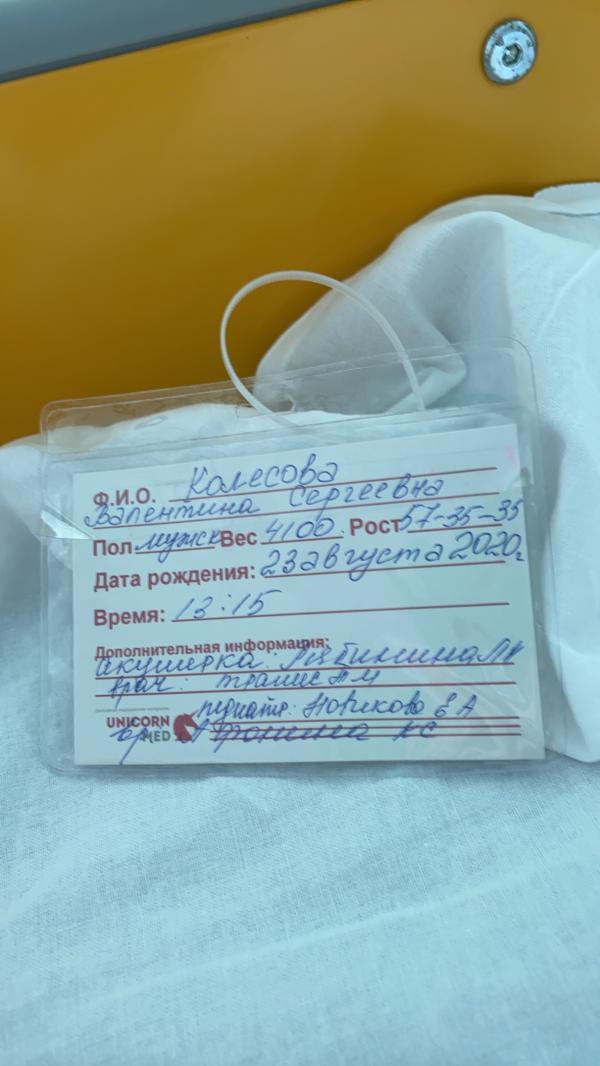 Ф.И.О. Колесова
Валентина Сергеевна
Пол мужск Вес 4100 Рост 57-35-35
Дата рождения: 23 августа 2020г
Время: 13:15
Дополнительная информация:
Акушерка: Рябинина
врач:
педиатр: Новикова Е А
UNICORN
MED вр Афонина КС